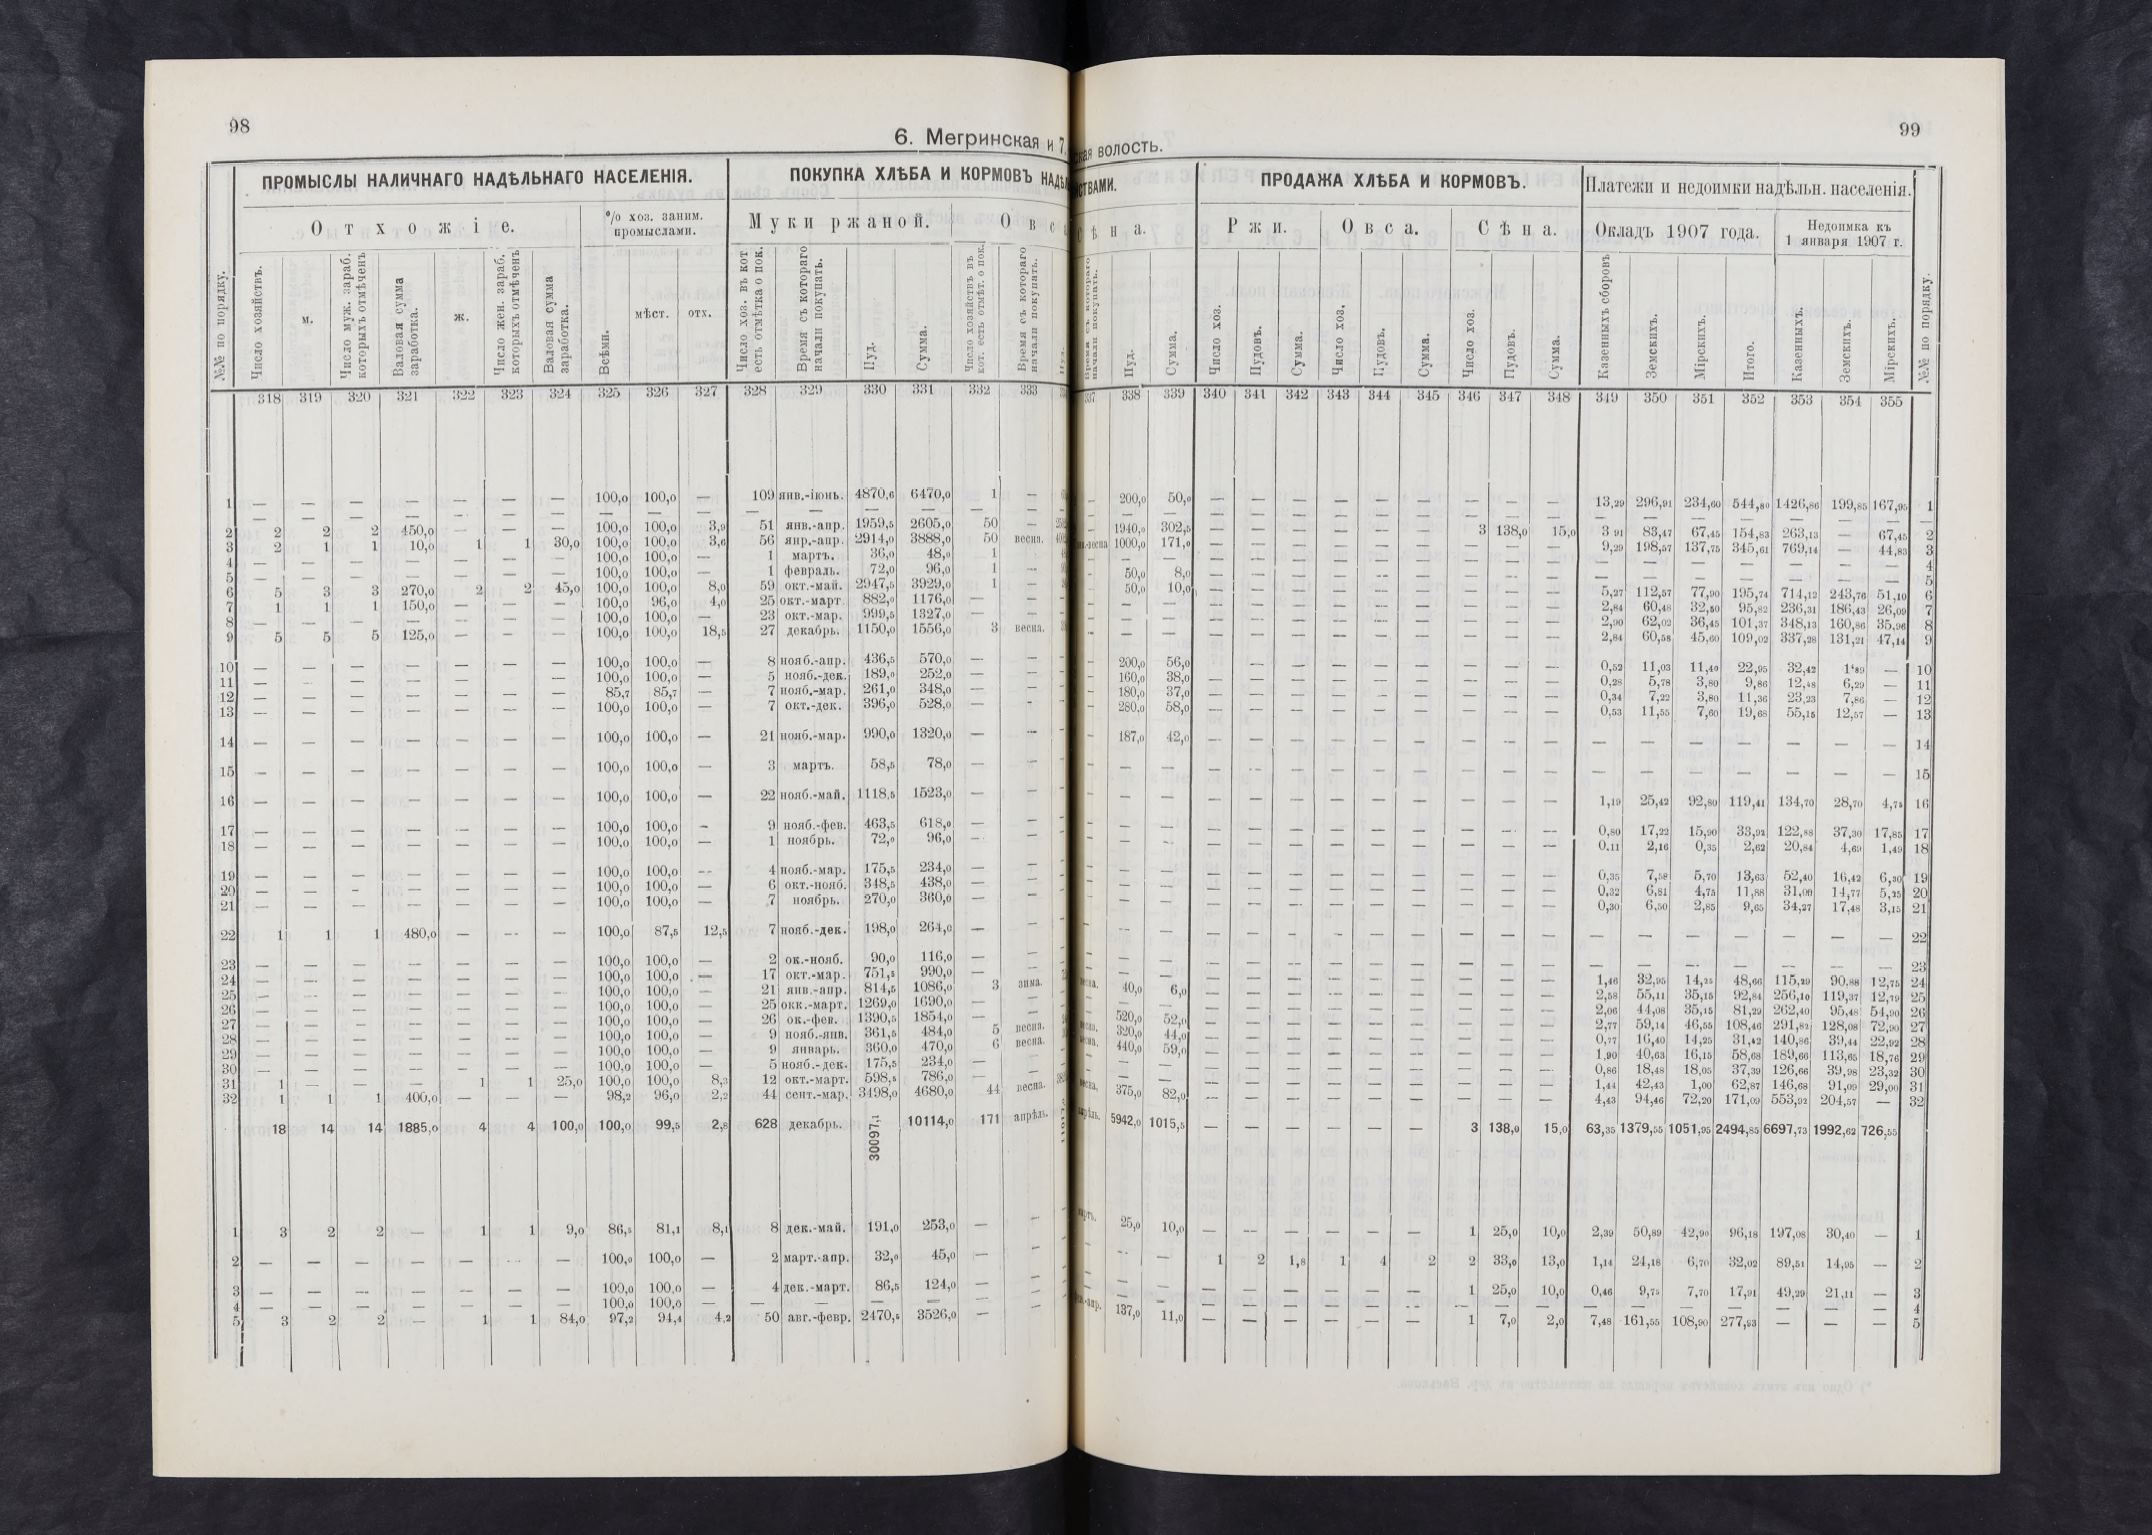 98
99
6. Мегринская и 7.
ская волость.
ПРОМЫСЛЫ НАЛИЧНАГО НАДѢЛЬНАГО НАСЕЛЕНІЯ.
ПОКУПКА ХЛѢБА И КОРМОВЪ
СТВАМИ.
ПРОДАЖА ХЛѢБА И КОРМОВЪ.
Платежи и недоимки надѣльн. населенія.
Отхожіе.
% хоз. заним. промыслами.
Муки ржаной.
Овса
Сѣна.
Ржи.
Овса.
Сѣна.
Окладъ 1907 года.
Недоимка къ 1 января 1907 г.
№№ по порядку.
Число хозяйствъ.
м.
Число муж. зараб. которыхъ отмѣченъ
Валовая сумма заработка.
ж.
Число жен. зараб. которыхъ отмѣченъ
Валовая сумма заработка.
Всѣми.
мѣст.
отх.
Число хоз. въ кот есть отмѣтка о пок.
Время съ котораго начали покупать.
Пуд.
Сумма.
Число хозяйствъ въ кот. есть отмѣт. о пок.
Время съ котораго начали покупать.
Время съ котораго начали покупать.
Пуд.
Сумма.
Число хоз.
Пудовъ.
Сумма.
Число хоз.
Пудовъ.
Сумма.
Число хоз.
Пудовъ.
Сумма.
Казенныхъ сборовъ
Земскихъ.
Мірскихъ.
Итого.
Казенныхъ.
Земскихъ.
Мірскихъ.
№№ по порядку.
318 319 320 321 322 323 324 325 326 327 328 329 330 331 332 333 337 338 339 340 341 342 343 344 345 346 347 348 349 350 351 352 353 354 355
1 — — — — — — — 100,0 100,0 — 109 янв.-іюнь. 4870,6 6470,0 1 — — 200,0 50,0 — — — — — — — — — 13,29 296,91 234,60 544,80 1426,86 199,85 167,95 1
2 2 2 2 450,0 — — — 100,0 100,0 3,9 51 янв.-апр. 1959,5 2605,0 50 — — 1940,0 302,5 — — — — — — 3 138,0 15,0 3 91 83,47 67,45 154,83 263,13 — 67,45 2
3 2 1 1 10,0 1 1 30,0 100,0 100,0 3,6 56 янр.-апр. 2914,0 3888,0 50 весна. 1000,0 171,0 — — — — — — — — — 9,29 198,57 137,75 345,61 769,14 — 44,83 3
4 — — — — — — — 100,0 100,0 — 1 мартъ. 36,0 48,0 1 — — — — — — — — — — — — 4
5 — — — — — — — 100,0 100,0 — 1 февраль. 72,0 96,0 1 — — 50,0 8,0 — — — — — — — — — 5
6 5 3 3 270,0 2 2 45,0 100,0 100,0 8,0 59 окт.-май. 2947,5 3929,0 1 — — 50,0 10,0 — — — — — — — — — 5,27 112,57 77,90 195,74 714,12 243,76 51,10 6
7 1 1 1 150,0 — — — 100,0 96,0 4,0 25 окт.-март. 882,0 1176,0 — — — — — — — — — — — — — — 2,84 60,48 32,50 95,82 236,31 186,43 26,09 7
8 — — — — — — — 100,0 100,0 — 23 окт.-мар. 999,5 1327,0 — — — — — — — — — — — — — — 2,90 62,02 36,45 101,37 348,13 160,86 35,96 8
9 5 5 5 125,0 — — — 100,0 100,0 18,5 27 декабрь. 1150,0 1556,0 3 весна. — — — — — — — — — — — — 2,84 60,58 45,60 109,02 337,28 131,21 47,14 9
10 — — — — — — — 100,0 100,0 — 8 нояб.-апр. 436,5 570,0 — — — 200,0 56,0 — — — — — — — — — 0,52 11,03 11,40 22,95 32,42 — 10
11 — — — — — — — 100,0 100,0 — 5 нояб.-дек. 189,0 252,0 — — — 160,0 38,0 — — — — — — — — — 0,28 5,78 3,80 9,86 12,48 6,29 — 11
12 — — — — — — — 85,7 85,7 — 7 нояб.-мар. 261,0 348,0 — — — 180,0 37,0 — — — — — — — — — 0,34 7,22 3,80 11,36 23,23 7,86 — 12
13 — — — — — — — 100,0 100,0 — 7 окт.-дек. 396,0 528,0 — — — 280,0 58,0 — — — — — — — — — 0,53 11,55 7,60 19,68 55,15 12,57 — 13
14 — — — — — — — 100,0 100,0 — 21 нояб.-мар. 990,0 1320,0 — — — 187,0 42,0 — — — — — — — — — — — — — — — — 14
15 — — — — — — — 100,0 100,0 — 3 мартъ. 58,5 78,0 — — — — — — — — — — — — — — — — — — — — — 15
16 — — — — — — — 100,0 100,0 — 22 нояб.-май. 1118,5 1523,0 — — — — — — — — — — — — — — 1,19 25,42 92,80 119,41 134,70 28,70 4,75 16
17 — — — — — — — 100,0 100,0 — 9 нояб.-фев. 463,5 618,0 — — — — — — — — — — — — — — 0,80 17,22 15,90 33,92 122,88 37,30 17,85 17
18 — — — — — — — 100,0 100,0 — 1 ноябрь. 72,0 96,0 — — — — — — — — — — — — — — 0,11 2,16 0,35 2,62 20,84 4,69 1,49 18
19 — — — — — — — 100,0 100,0 — 4 нояб.-мар. 175,5 234,0 — — — — — — — — — — — — — — 0,35 7,58 5,70 13,63 52,40 16,42 6,30 19
20 — — — — — — — 100,0 100,0 — 6 окт.-нояб. 348,5 438,0 — — — — — — — — — — — — — — 0,32 6,81 4,75 11,88 31,09 14,77 5,25 20
21 — — — — — — — 100,0 100,0 — 7 ноябрь. 270,0 360,0 — — — — — — — — — — — — — — 0,30 6,50 2,85 9,65 34,27 17,48 3,15 21
22 1 1 1 480,0 — — — 100,0 87,5 12,5 7 нояб.-дек. 198,0 264,0 — — — — — — — — — — — — — — — — — — — — — 22
23 — — — — — — — 100,0 100,0 — 2 ок.-нояб. 90,0 116,0 — — — — — — — — — — — — — — — — — — — — — 23
24 — — — — — — — 100,0 100,0 — 17 окт.-мар. 751,5 990,0 — — — — — — — — — — — — — 1,46 32,95 14,25 48,66 115,29 90,88 12,75 24
25 — — — — — — — 100,0 100,0 — 21 янв.-апр. 814,5 1086,0 3 зима. весна. 40,0 6,0 — — — — — — — — — 2,58 55,11 35,15 92,84 256,10 119,37 12,79 25
26 — — — — — — — 100,0 100,0 — 25 окк.-март. 1269,0 1690,0 — — — — — — — — — — — — — — 2,06 44,08 35,15 81,29 262,40 95,48 54,90 26
27 — — — — — — — 100,0 100,0 — 26 ок.-фев. 1390,5 1854,0 — — 520,0 52,0 — — — — — — — — — 2,77 59,14 46,55 108,46 291,82 128,08 72,90 27
28 — — — — — — — 100,0 100,0 — 9 нояб.-янв. 361,5 484,0 5 весна. весна. 320,0 44,0 — — — — — — — — — 0,77 16,40 14,25 31,42 140,86 39,44 22,92 28
29 — — — — — — — 100,0 100,0 — 9 январь. 360,0 470,0 6 весна. весна. 440,0 59,0 — — — — — — — — — 1,90 40,63 16,15 58,68 189,66 113,65 18,76 29
30 — — — — — — — 100,0 100,0 — 5 нояб.-дек. 175,5 234,0 — — — — — — — — — — — — — — 0,86 18,48 18,05 37,39 126,66 39,98 23,32 30
31 1 — — — 1 1 25,0 100,0 100,0 8,3 12 окт.-март. 598,5 786,0 — — — — — — — — — — — — — — 1,44 42,43 1,00 62,87 146,68 91,09 29,00 31
32 1 1 1 400,0 — — — 98,2 96,0 2,2 44 сент.-мар. 3498,0 4680,0 44 весна. весна. 375,0 82,0 — — — — — — — — — 4,43 94,46 72,20 171,09 553,92 204,57 — 32
18 14 14 1885,0 4 4 100,0 100,0 99,5 2,8 628 декабрь. 30097,1 10114,0 171 апрѣль. апрѣль. 5942,0 1015,5 — — — — — — 3 138,0 15,0 63,35 1379,55 1051,95 2494,85 6697,73 1992,62 726,55
1 3 2 2 — 1 1 9,0 86,5 81,1 8,1 8 дек.-май. 191,0 253,0 — — 25,0 10,0 — — — — — — 1 25,0 10,0 2,39 50,89 42,90 96,18 197,08 30,40 — 1
2 — — — — — — — 100,0 100,0 — 2 март.-апр. 32,0 45,0 — — — — — 1 2 1,8 1 4 2 2 33,0 13,0 1,14 24,18 6,70 32,02 89,51 14,95 — 2
3 — — — — — — — 100,0 100,0 — 4 дек.-март. 86,5 124,0 — — — — — — — — — — — 1 25,0 10,0 0,46 9,75 7,70 17,91 49,29 21,11 — 3
4 — — — — — — — 100,0 100,0 — — — — — — — — — — — — — — — — — — — — — — — — — — 4
5 3 2 2 — 1 1 84,0 97,2 94,4 4,2 50 авг.-февр. 2470,5 3526,0 — — 137,0 11,0 — — — — — — 1 7,0 2,0 7,48 161,55 108,90 277,93 — — — 5